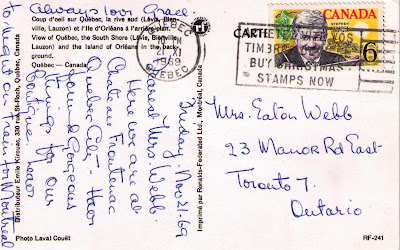 Always love Grace.
Coup d'oeil sur Québec, la rive sud (Lévis, Bien-
ville, Lauzon) et l'Ile d'Orléans à l'arrière-plan.
View of Québec, the South Shore (Lévis, Bienville,
Lauzon) and the Island of Orléans in the back-
ground.
Québec — Canada
Distributeur Emile Kirouac, 330 rue St-Roch, Québec, Canada
Photo Laval Couët
Imprimé par Ronalds-Federated Ltd., Montréal, Canada
RF-241
QUÉBEC
21 XI
1969
QUEBEC
TIMBRES
BUY CHRISTMAS
STAMPS NOW
CANADA
6
Friday, Nov 21-69
Dearest Mrs. Webb:
Here we are at
Chateau Frontenac
Quebec City - Have
found gorgeous
things for our
Boutique. Leave
tonight on train for Montreal
Mrs. Eaton Webb
23 Manor Rd East
Toronto 7.
Ontario